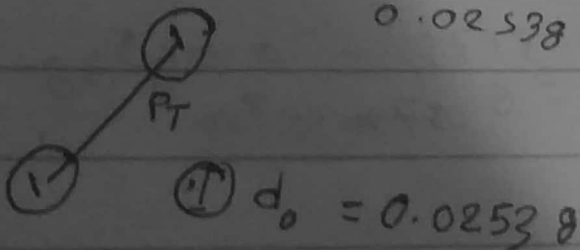 0.02538
PT
1
1
I d₀ = 0.02538